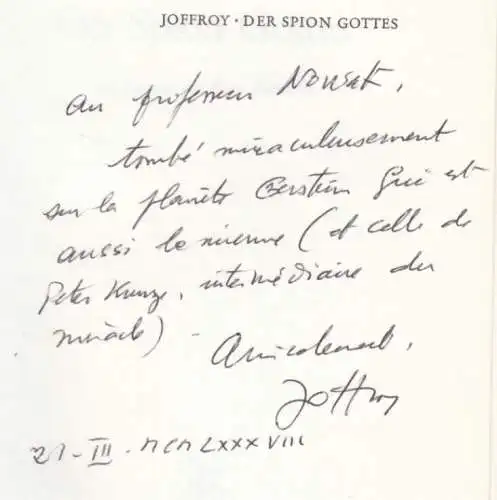 JOFFROY · DER SPION GOTTES
au professeur Nowak,
tombé miraculeusement
sur la planète Gerstein qui est
aussi la mienne (et celle de
Peter Kunze, intermédiaire du
miracle) -
Amicalement,
Joffroy
21 - III - MCMLXXXVIII